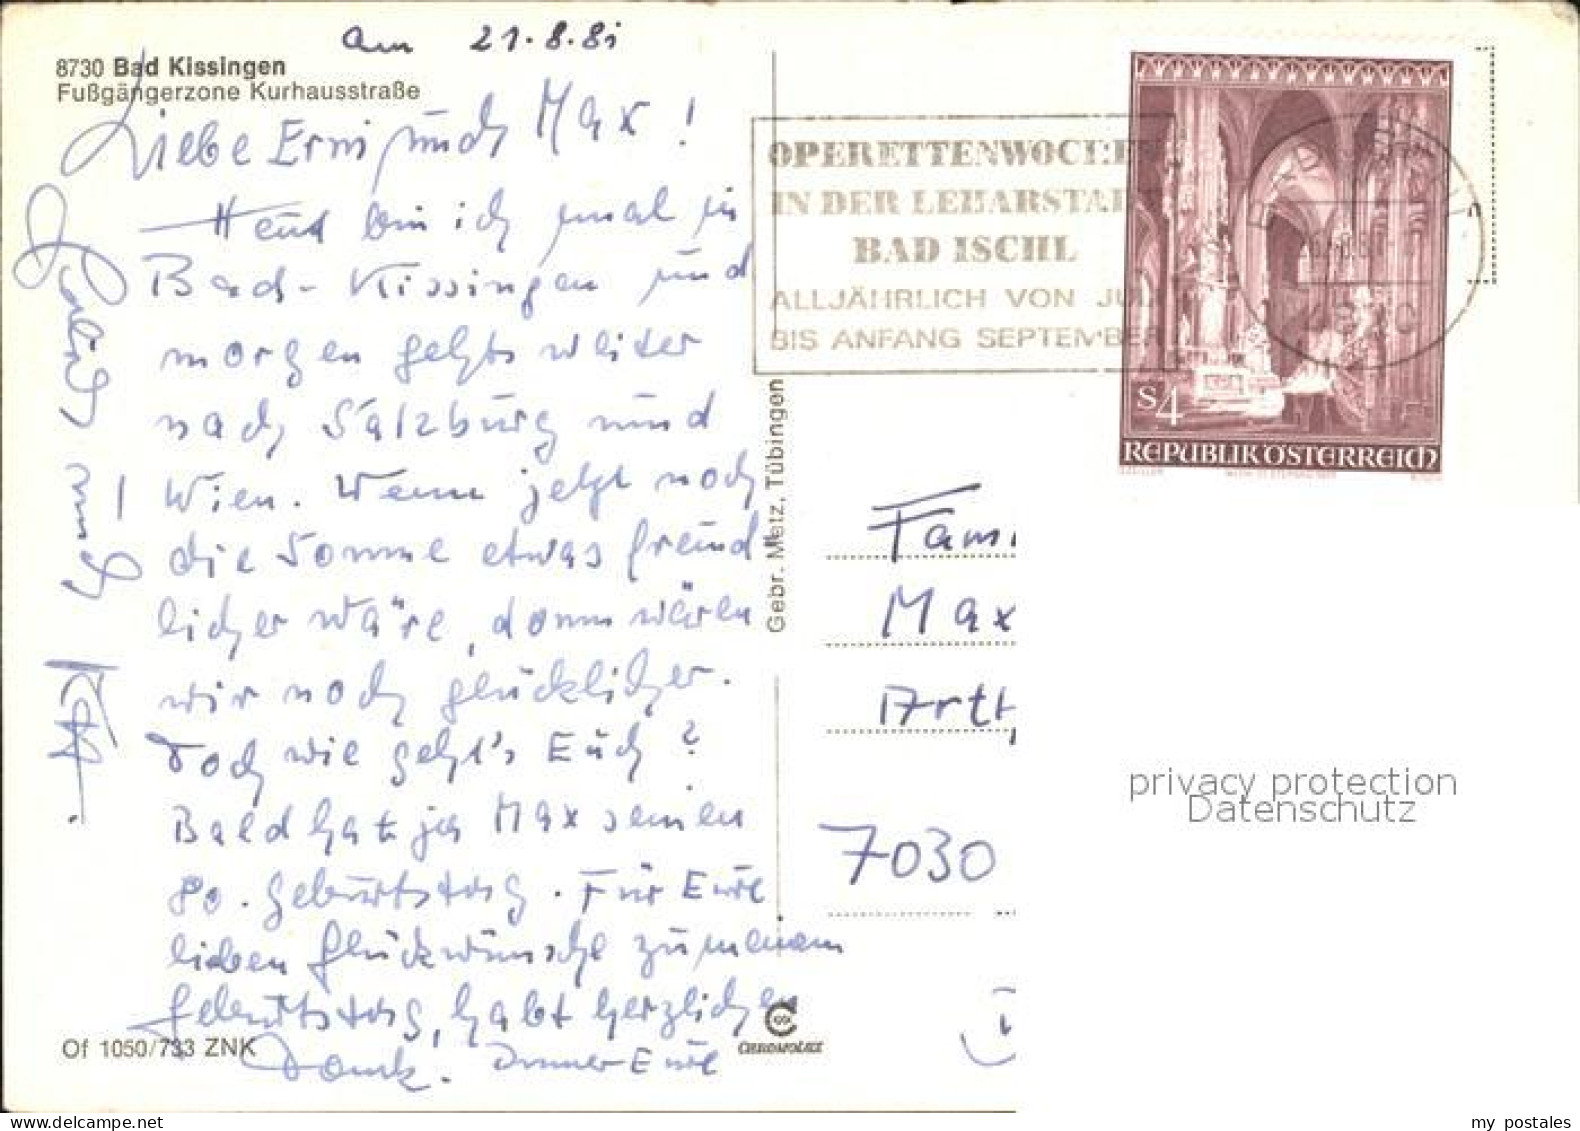 am 21.8.81
8730 Bad Kissingen
Fußgängerzone Kurhausstraße
Liebe Erni und Max!
Heut bin ich mal in
Bad-Kissingen und
morgen gehts weiter
nach Salzburg und
Wien. Wenn jetzt noch
die Sonne etwas freund
licher wäre, dann wären
wir noch glücklicher.
Doch wie geht's Euch?
Bald hat ja Max seinen
80. Geburtstag. Für Eure
lieben Glückwünsche zu meinem
Geburtstag, habt herzlichen
Dank. Immer Eure
und
Of 1050/733 ZNK
Gebr. Metz, Tübingen
CHROMOLUX
OPERETTENWOCHEN
IN DER LEHARSTADT
BAD ISCHL
ALLJÄHRLICH VON JULI
BIS ANFANG SEPTEMBER
S4
REPUBLIK ÖSTERREICH
Fam
Max
7030
privacy protection
Datenschutz
my postales